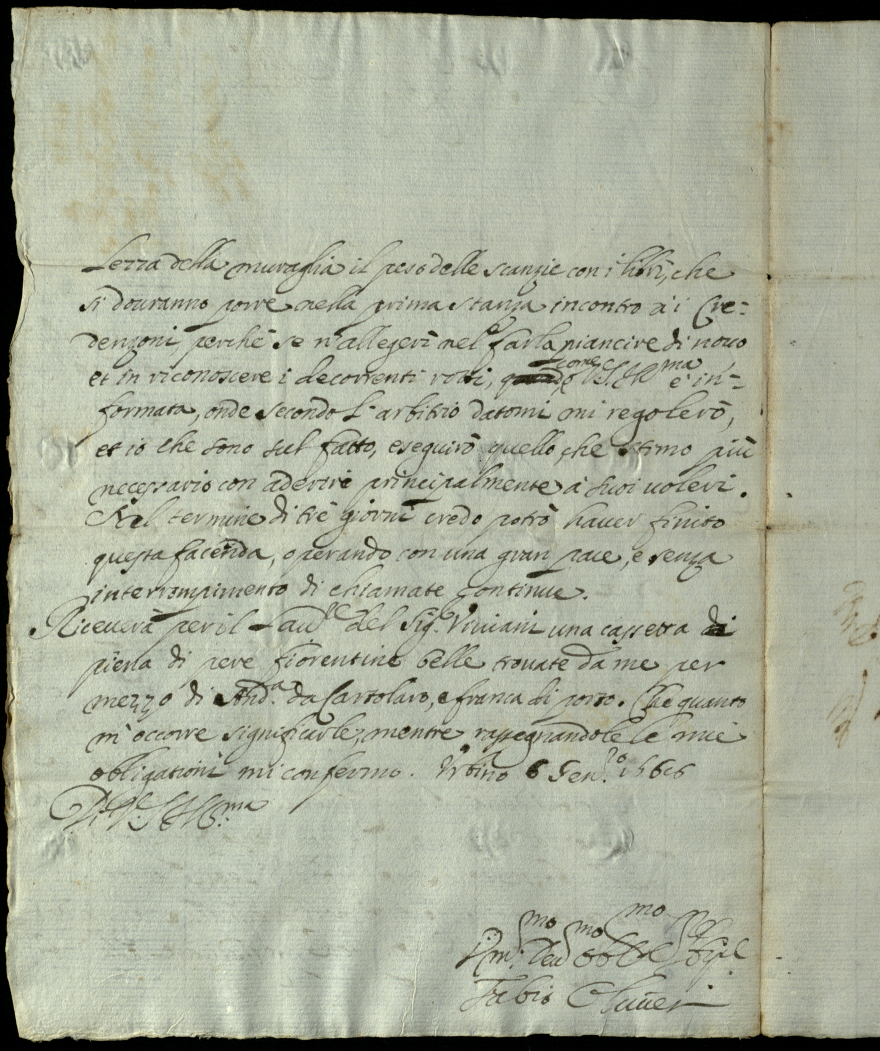 lezza della muraglia il peso delle scanzie con i libri, che
si douranno porre nella prima stanza incontro a' i Cre-
denzoni perche se n'allegerì nel farla piancire di nouo
et in riconoscere i decorrenti rotti, come V. S. Ill.ma è in-
formata, onde secondo l'arbitrio datomi mi regolerò,
et io che sono sul fatto, eseguirò quello, che stimo più
necessario con aderire principalmente à suoi uoleri.
Nel termine di trè giorni credo potrò hauer finito
questa facenda, operando con una gran pace, e senza
interrompimento di chiamate continue.
Riceuerà per il del Sig.r Viviani una cassetta di
piena di pere fiorentine belle trouate da me per
mezzo di And.a da Cartolaro, e franca di porto. Che quanto
m'occorre significarle, mentre rassegnandole le mie
obligationi mi confermo. Urbino 6 Fen.ro
Di V. S. Ill.ma
mo mo mo
Deu Obbl
Fabio